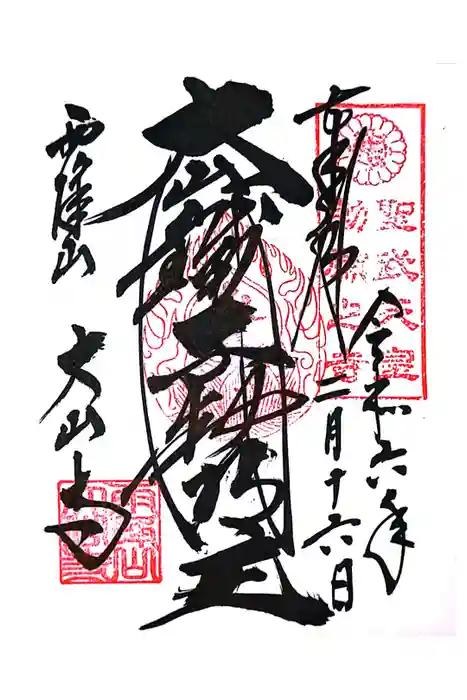 聖武天皇
勅願之寺
奉拝
令和六年
二月十六日
大山鐵不動明王
雨降山
大山寺